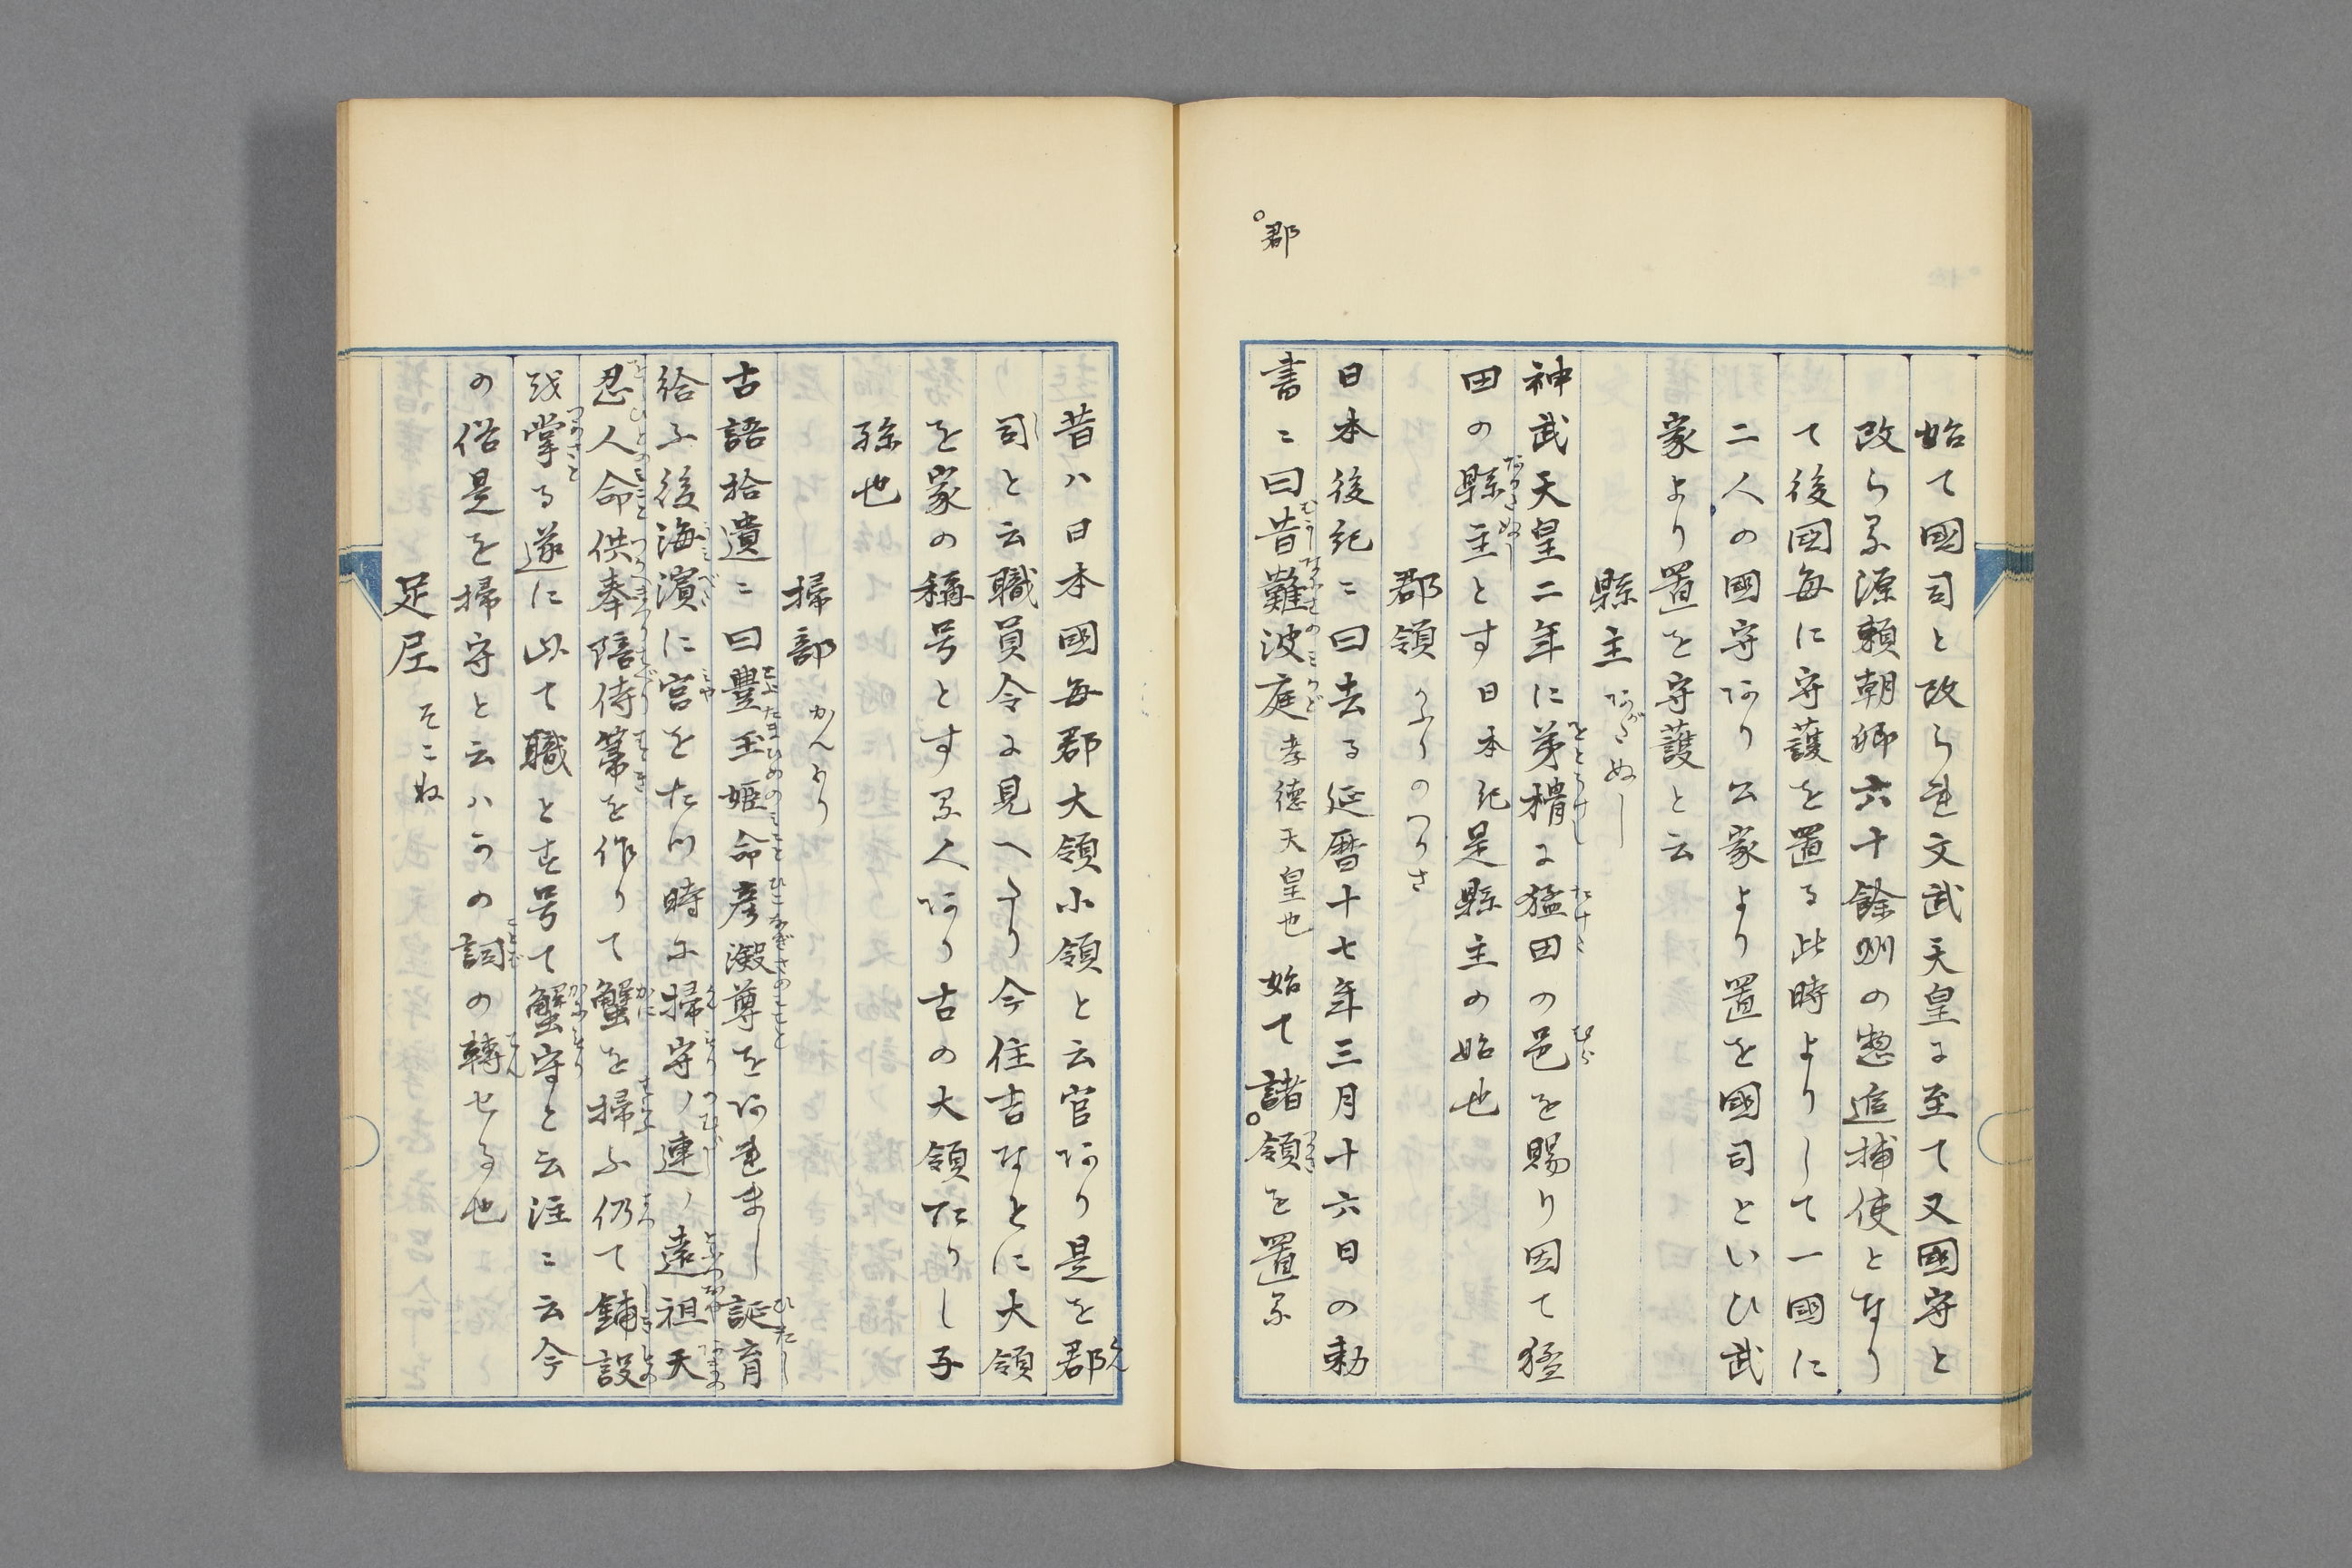 始て國司と改られ文武天皇に至て又國守と
改らる源頼朝卿六十餘州の惣追捕使となり
て後國毎に守護を置る此時よりして一國に
二人の國守あり公家より置を國司といひ武
家より置を守護と云
縣主 あがたぬし
神武天皇二年に弟猾に猛田の邑を賜り因て猛
田の縣主とす日本紀是縣主の始也
郡領 こふりのつかさ
日本後紀ニ曰去る延暦十七年三月十六日の勅
書ニ曰昔難波庭孝德天皇也始て諸領を置る
郡
昔ハ日本國毎郡大領小領と云官あり是を郡
司と云職員令に見へたり今住吉なとに大領
を家の稱号とする人あり古の大領たりし子
孫也
掃部 かんもり
古語拾遺ニ曰豊玉姫命彦瀲尊をあれまし誕育
給ふ後海濵に宮をたつ時に掃守ノ連ノ遠祖天
忍人命供奉陪侍箒を作りて蟹を掃ふ仍て鋪設
を掌る遂に以て職とす号て蟹守と云注ニ云今
の俗是を掃守と云ハかの詞の轉せる也
足尼 そこね